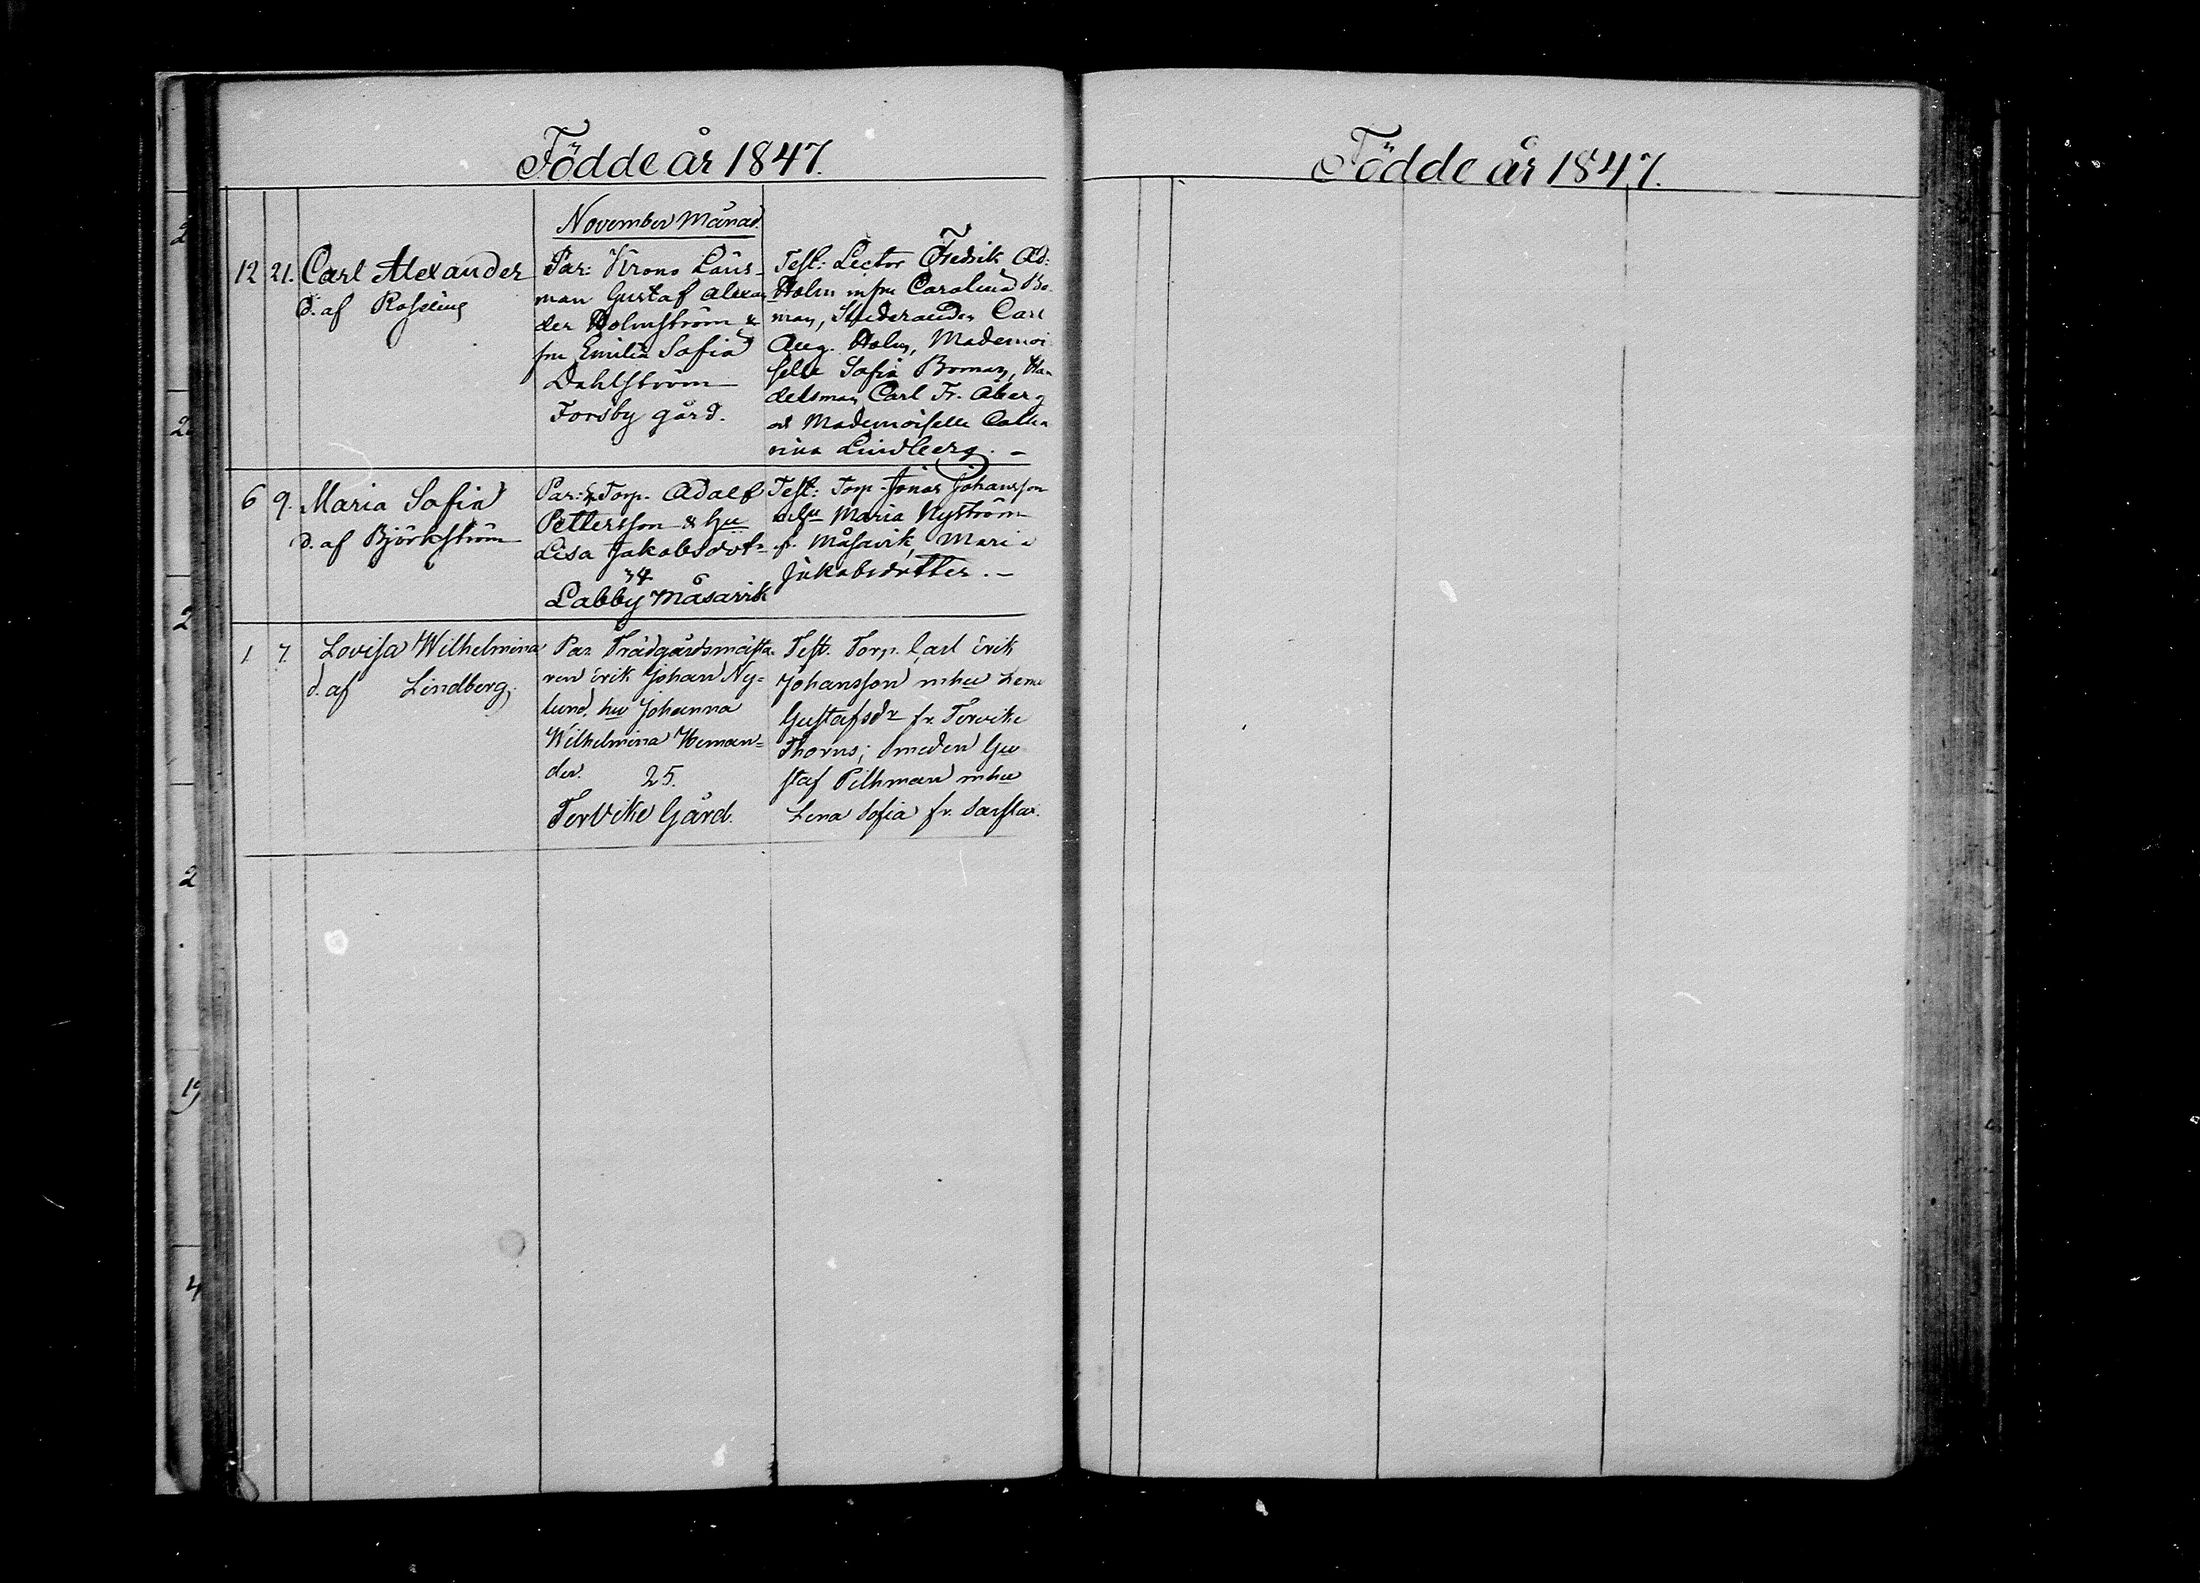 Födde år 1847.
November Månad.
12 21. Carl Alexander
d. af Roseliug
Par: Krono Läns-
man Gustaf Alexan
der Holmström &
fru Emilia Sofia
Dahlström
Forsby gård.
Test: Lector Fredrik Ad:
Holm m fru Carolina Bo-
man, Studeranden Carl
Aug. Holm, Mademoi
selle Sofia Boman, Han
delsman Carl Fr. Åberg
och Mademoiselle Catha
rina Lindberg. -
6 9. Maria Sofia
d. af Björkström
Par: Torp. Adolf
Pettersson & hu
Lisa Jakobsdotr
34
Labby Måsavik
Test: Torp. Jonas Johansson
m hu Maria Nyström
fr. Måsavik, Maria
Jakobsdotter. -
1. 7. Lovisa Wilhelmina
d. af Lindberg.
Par. Trädgårdsmästa-
ren Erik Johan Ny=
lund, hu Johanna
Wilhelmina Heman=
der. 25.
Tervike Gård.
Test. Torp. Carl Erik
Johansson mhu Lena
Gustafsdr fr. Tervike
Thorns; Smeden Gu
staf Pilhman mhu
Lena Sofia fr. Sarflax.
Födde år 1847.
2
2
2
2
19
4